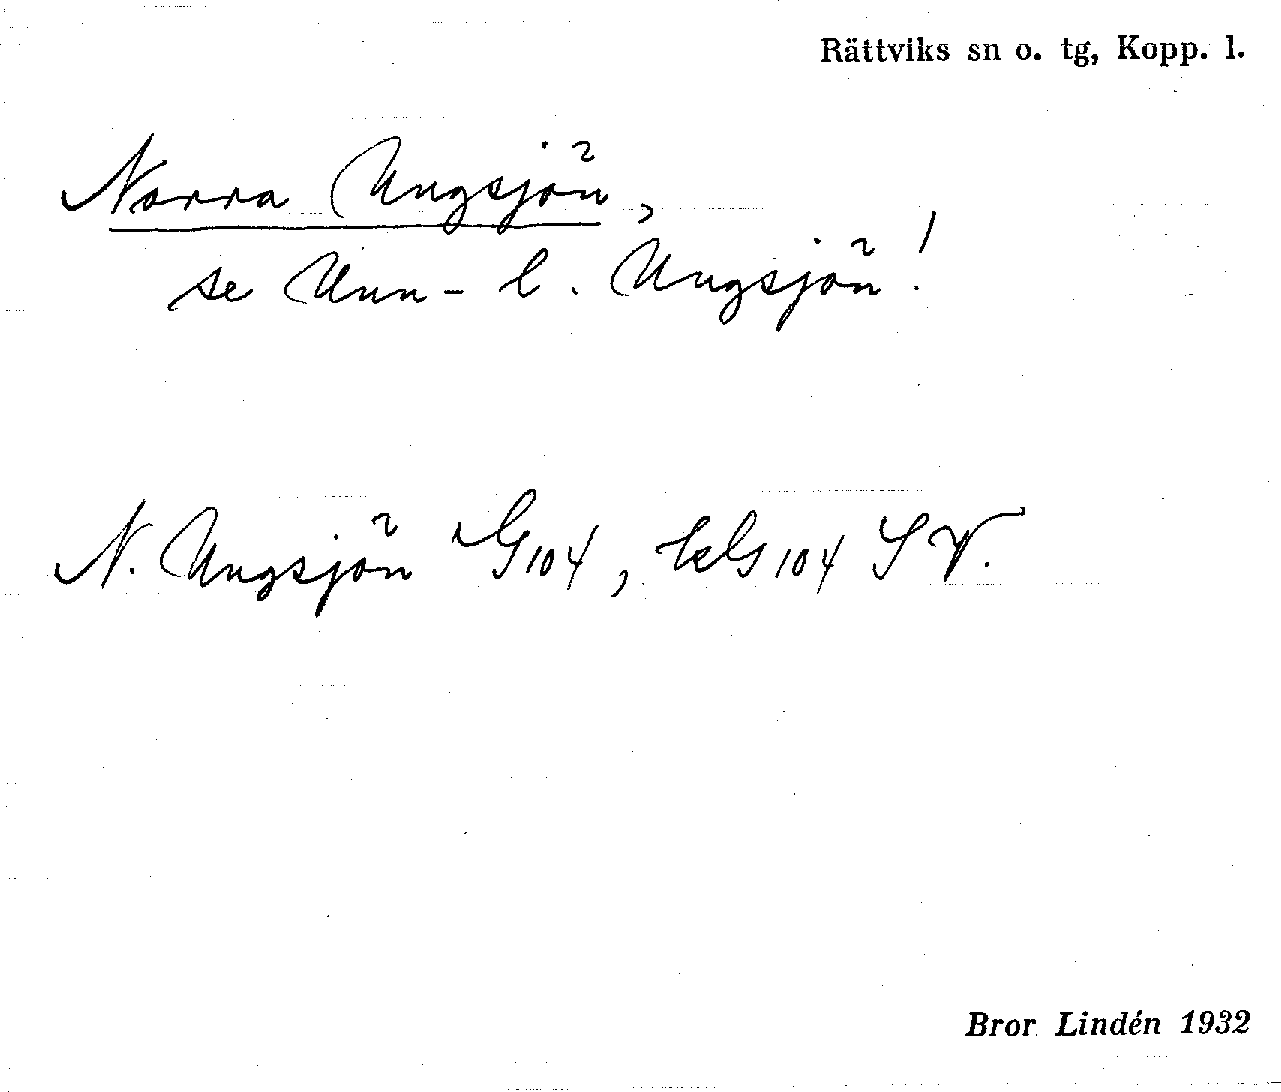 Rättviks sn o. tg, Kopp. l.
Norra Ungsjön,
se Unn- l. Ungsjön!
N. Ungsjön G104, G104 SV.
Bror Lindén 1932